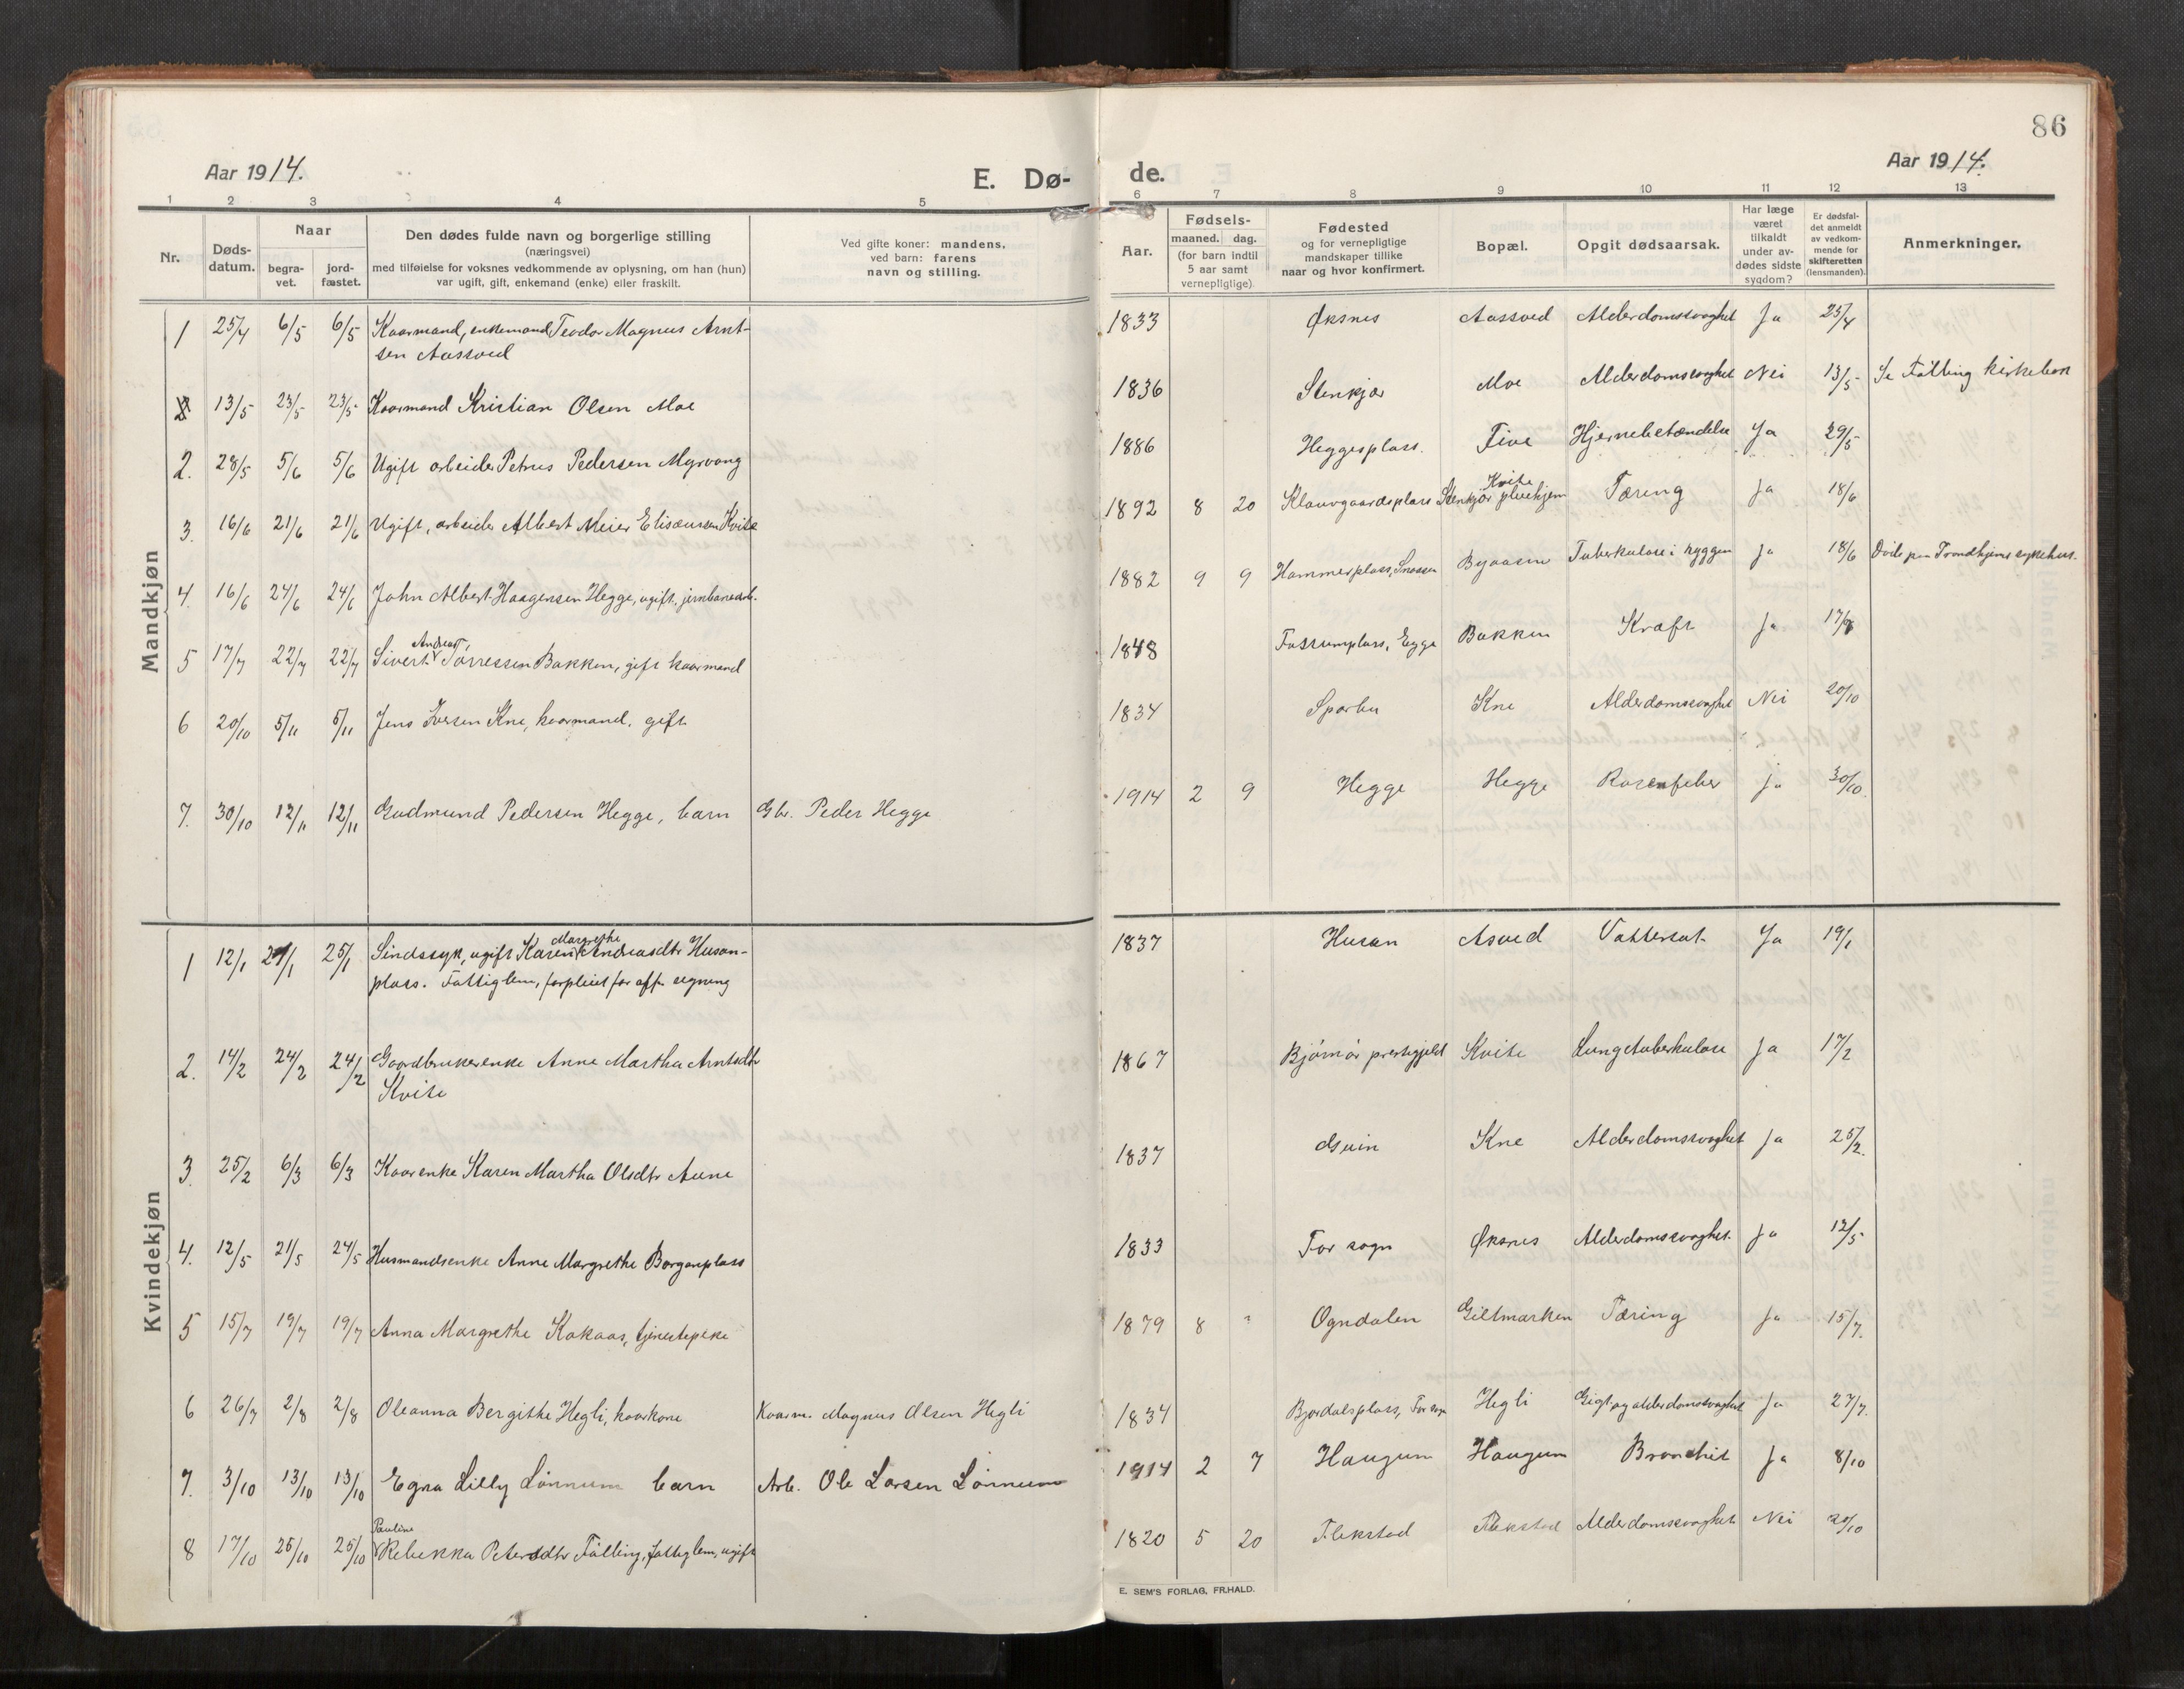 86
Aar 1914.
E. Dø-
de.
Aar 1914.
1 2 3 4 5 6 7 8 9 10 11 12 13
Nr.
Døds-
datum.
Naar
begra-
vet.
jord-
fæstet.
Den dødes fulde navn og borgerlige stilling
(næringsvei)
med tilføielse for voksnes vedkommende av oplysning, om han (hun)
var ugift, gift, enkemand (enke) eller fraskilt.
Ved gifte koner: mandens.
ved barn: farens
navn og stilling.
Aar.
Fødsels-
maaned. dag.
(for barn indtil
5 aar samt
vernepligtige)
Fødested
og for vernepligtige
mandskaper tillike
naar og hvor konfirmert.
Bopæl.
Opgit dødsaarsak.
Har læge
været
tilkaldt
under av-
dødes sidste
sygdom?
Er dødsfal-
det anmeldt
av vedkom-
mende for
skifteretten
(lensmanden).
Anmerkninger.
Mandkjøn
1 25/4 6/5 6/5 Kaarmand, enkemand Teodor Magnus Arnt- 1833 Øksnes Aassved Alderdomssvaghet Ja 25/4
sen Aassved
2 13/5 23/5 23/5 Kaarmand Kristian Olsen Moe 1836 Stenkjær Moe Alderdomssvaghet Nei 13/5 Se Følling kirkebok
2. 28/5 5/6 5/6 Ugift arbeider Petrus Pedersen Myrvang 1886 Heggesplass. Five Hjernebetændelse Ja 29/5
Kvite
3. 16/6 21/6 21/6 Ugift, arbeider Albert Meier Elisæussen Kvite 1892 8 20 Klauvgaardsplass Stenkjær pleiehjem Tæring Ja 18/6
4. 16/6 24/6 24/6 John Albert Haagensen Hegge, ugift, jernbanearb. 1882 9 9 Hammerplass, Snaasen Byaasen Tuberkulose i ryggen Ja 18/6 Døde paa Trondhjems sykehus.
Andreas
5 17/7 22/7 22/7 Sivert Torressen Bakken, gift kaarmand 1848 Fossumplass, Egge Bakken Kræft Ja 17/7
6 20/10 5/11 5/11 Jens Iversen Kne, kaarmand, gift 1834 Sparbu Kne Alderdomssvaghet Nei 20/10
7. 30/10 12/11 12/11 Gudmund Pedersen Hegge, barn Gbr. Peder Hegge 1914 2 9 Hegge Hegge Rosenfeber Ja 30/10.
Kvindekjøn
Margrethe
1 12/1 25/1 Sindssyk, ugift Karen Andreasdtr Husan- 1837 Husan Asved Vattersot. Ja 19/1
plass. Fattiglem, forpleiet for off. regning
2. 14/2 24/2 24/2 Gaardbrukerenke Anne Martha Arntsdtr 1867 Bjørnør prestegjeld Kvite Lungetuberkulose Ja 17/2
Kvite
3. 25/2 6/3 6/3 Kaarenke Karen Martha Olsdtr Aune 1837 Kne Alderdomssvaghet Ja 25/2.
4. 12/5 21/5 24/5 Husmandsenke Anne Margrethe Borganplass 1833 For sogn Øksnes Alderdomssvaghet. Ja 12/5
5 15/7 19/7 19/7 Anna Margrethe Kokaas, tjenestepike 1879 8 ? Ogndalen Giltmarken Tæring Ja 15/7.
6 26/7 2/8 2/8 Oleanna Bergithe Hegli, kaarkone Kaarm. Magnus Olsen Hegli 1834 Bjordalsplass, For sogn Hegli Gigt og alderdomssvaghet Ja 27/7.
7. 3/10 13/10 13/10 Egna Lilly Lønnum barn Arb. Ole Larsen Lønnum 1914 2 7 Haugum Haugum Bronchit Ja 8/10
Pauline
8 17/10 25/10 25/10 Rebekka Petersdtr Følling, fattiglem, ugift 1820 5 20 Flekstad Flekstad Alderdomssvaghet Nei 20/10
E. SEM'S FORLAG, FR.HALD.